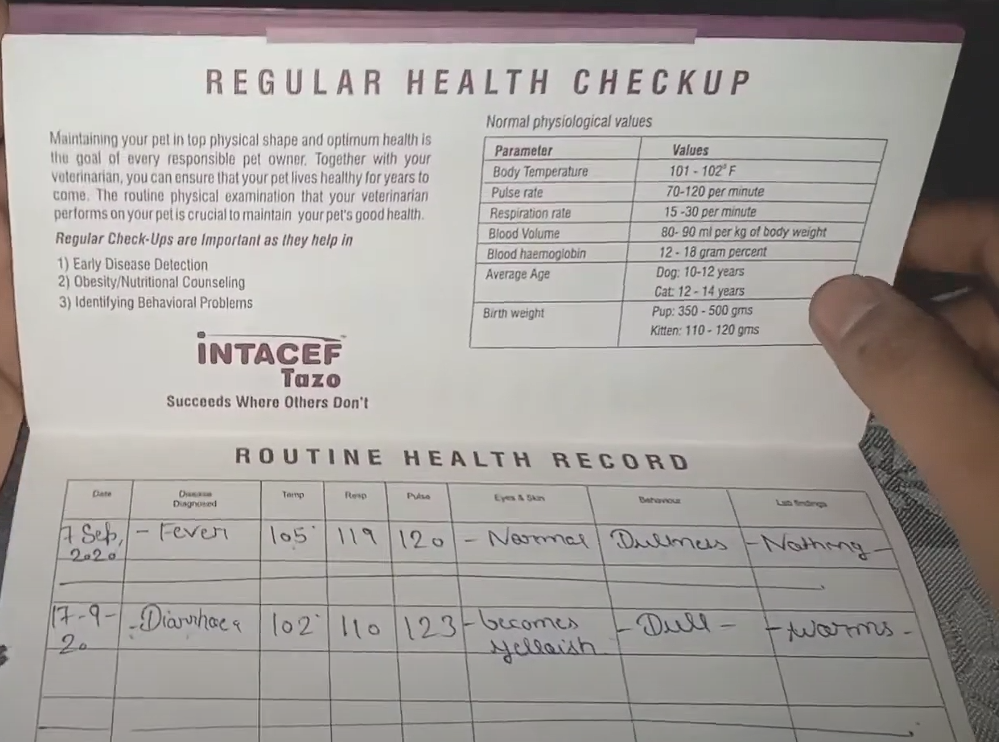 REGULAR HEALTH CHECKUP
Maintaining your pet in top physical shape and optimum health is
the goal of every responsible pet owner. Together with your
veterinarian, you can ensure that your pet lives healthy for years to
come. The routine physical examination that your veterinarian
performs on your pet is crucial to maintain your pet's good health.
Regular Check-Ups are Important as they help in
1) Early Disease Detection
2) Obesity/Nutritional Counseling
3) Identifying Behavioral Problems
INTACEF
Tazo
Succeeds Where Others Don't
Normal physiological values
Parameter Values
Body Temperature 101 - 102° F
Pulse rate 70-120 per minute
Respiration rate 15 -30 per minute
Blood Volume 80- 90 ml per kg of body weight
Blood haemoglobin 12 - 18 gram percent
Average Age Dog: 10-12 years
Cat: 12 - 14 years
Birth weight Pup: 350 - 500 gms
Kitten: 110 - 120 gms
ROUTINE HEALTH RECORD
Date Disease Diagnosed Temp Resp Pulse Eyes & Skin Behaviour Lab findings
7 Sep, 2020 - Fever 105° 119 120 - Normal Dullness - Nothing -
17-9-20 - Diarrhoea 102° 110 123 - becomes yellowish - Dull - - worms -